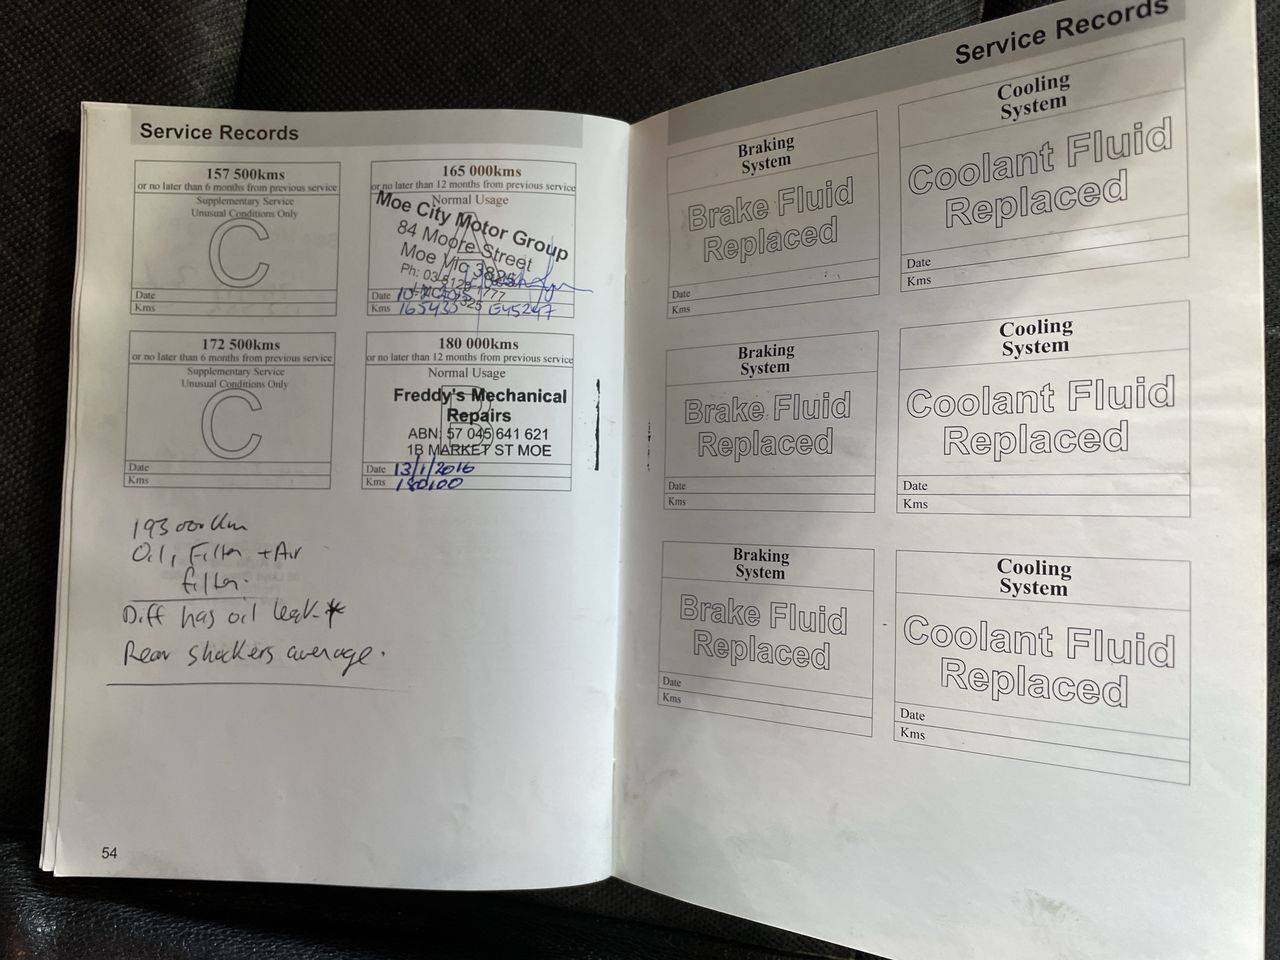 Service Records
157 500kms
or no later than 6 months from previous service
Supplementary Service
Unusual Conditions Only
C
Date
Kms
165 000kms
or no later than 12 months from previous service
Normal Usage
A
Moe City Motor Group
84 Moore Street
Moe Vic 3825
Ph: 03 5126 1777
Date
Kms 165430
172 500kms
or no later than 6 months from previous service
Supplementary Service
Unusual Conditions Only
C
Date
Kms
180 000kms
or no later than 12 months from previous service
Normal Usage
B
Freddy's Mechanical
Repairs
ABN: 57 045 641 621
1B MARKET ST MOE
Date 13/1/2016
Kms 180100
193 000 km
Oil, Filter + Air
filter.
Diff has oil leak *
Rear shockers average.
54
Service Records
Braking
System
Brake Fluid
Replaced
Date
Kms
Cooling
System
Coolant Fluid
Replaced
Date
Kms
Braking
System
Brake Fluid
Replaced
Date
Kms
Cooling
System
Coolant Fluid
Replaced
Date
Kms
Braking
System
Brake Fluid
Replaced
Date
Kms
Cooling
System
Coolant Fluid
Replaced
Date
Kms